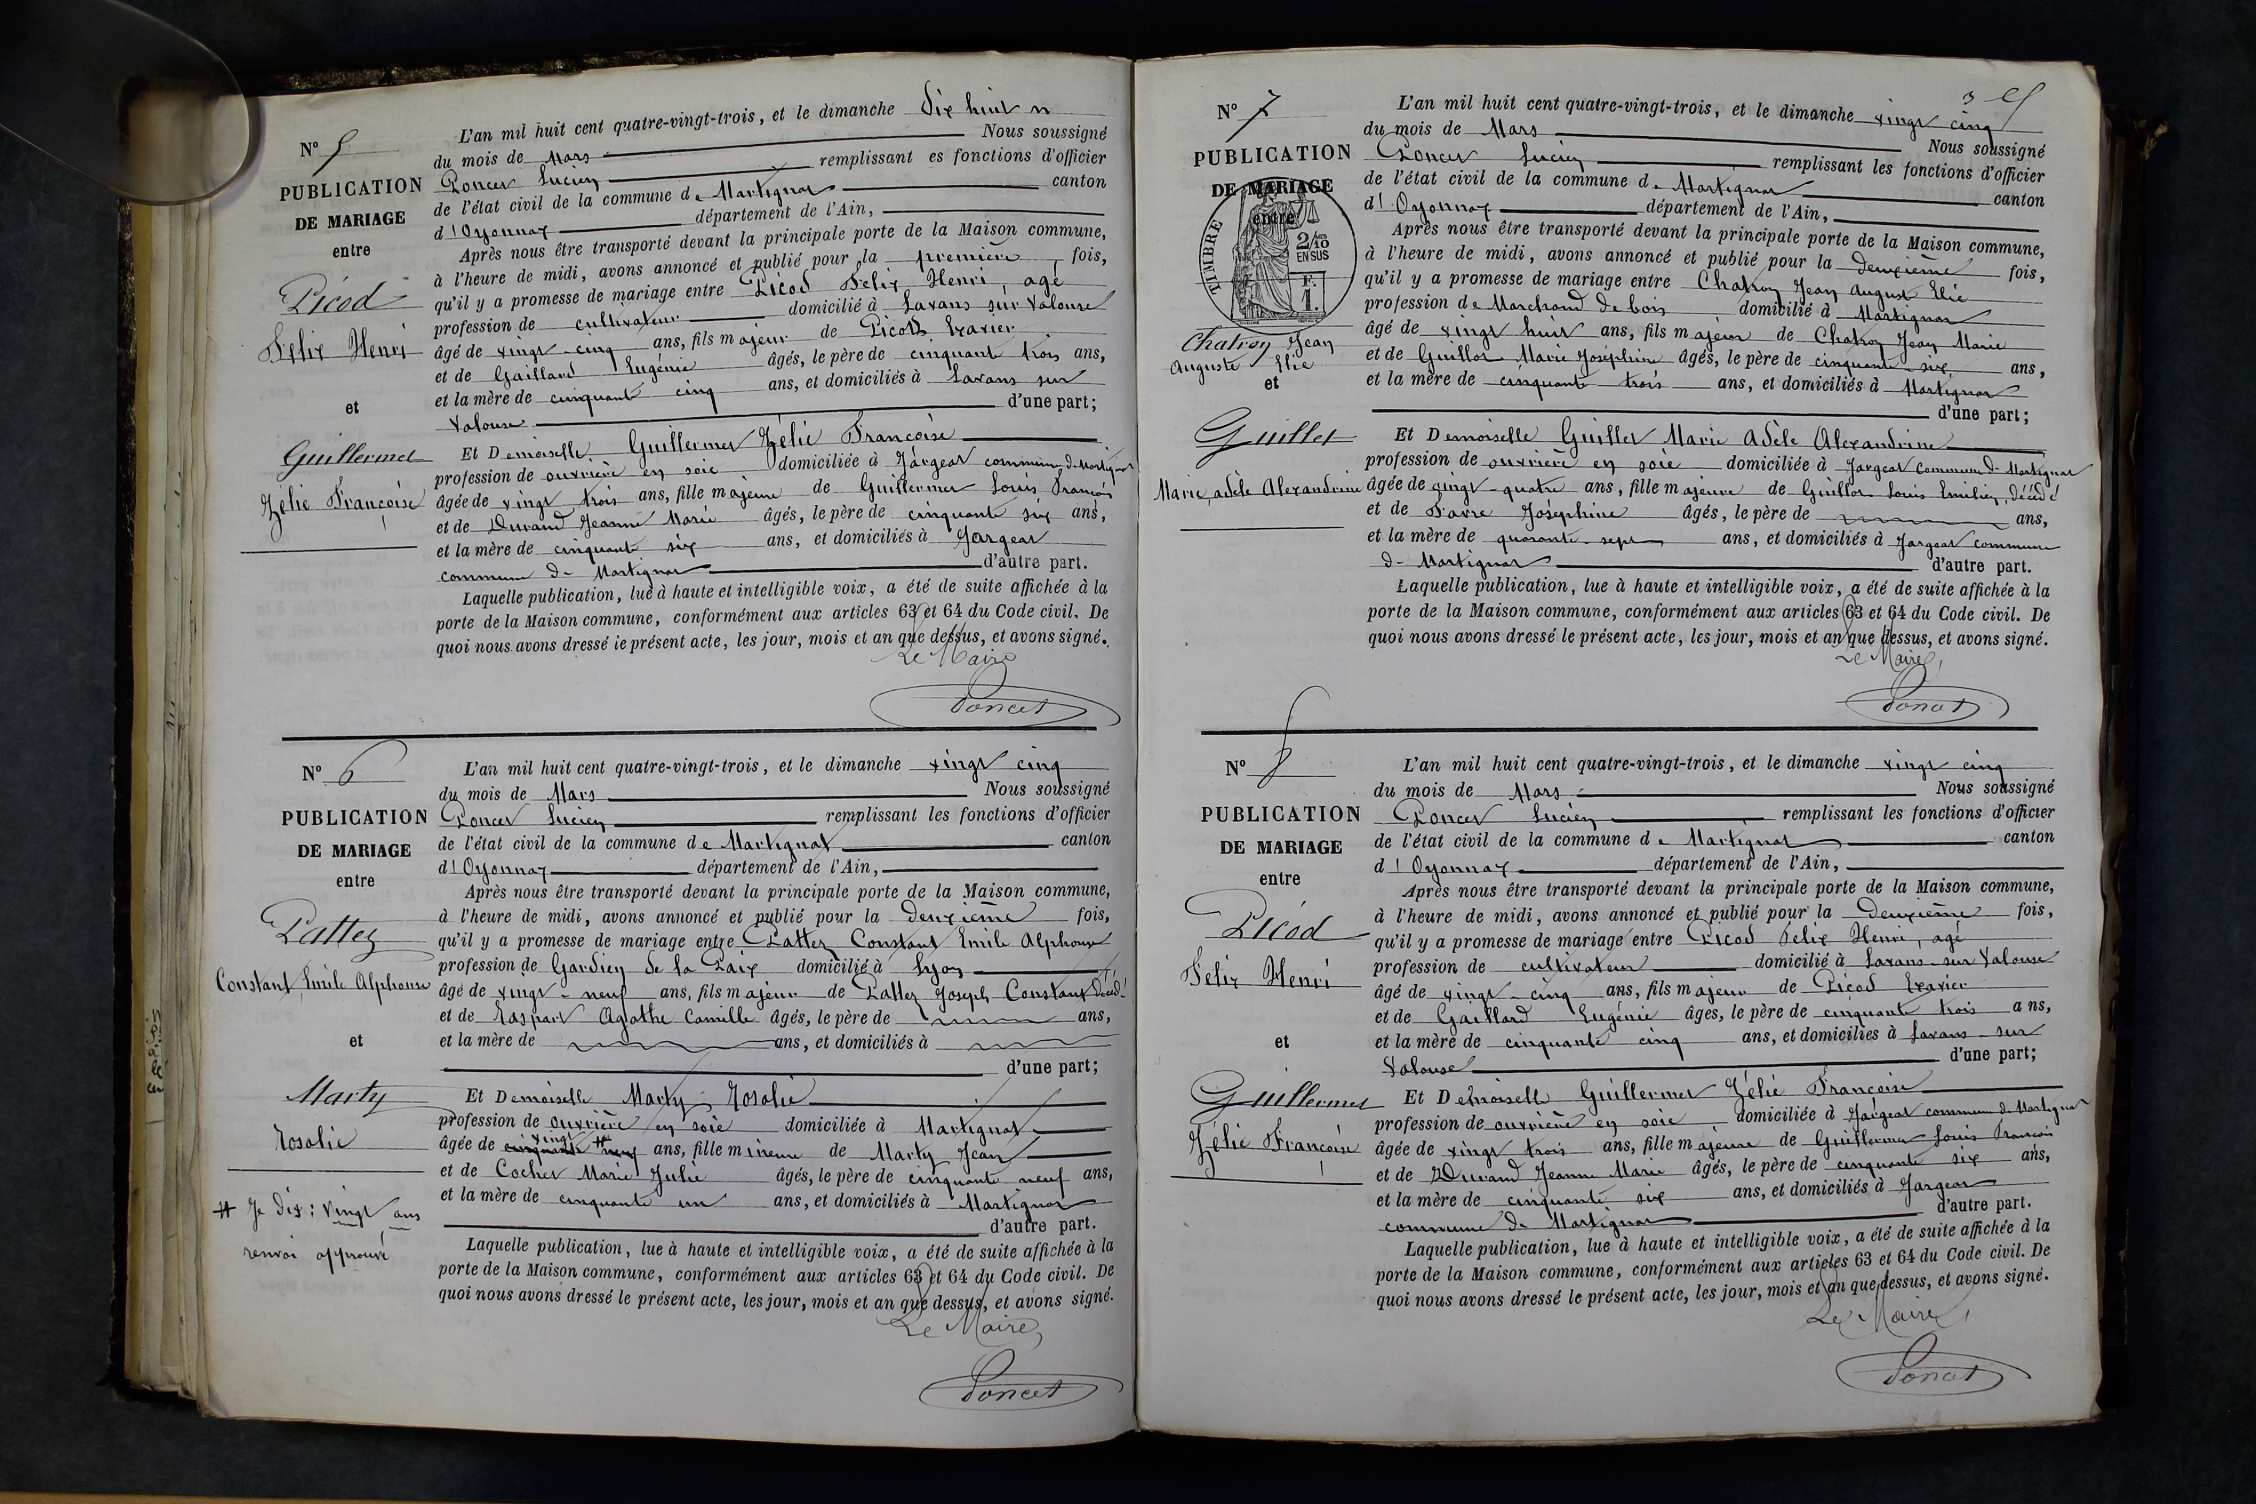 N° 5
PUBLICATION
DE MARIAGE
entre
Picod
Félix Henri
et
Guillermet
Zélie Françoise
L'an mil huit cent quatre-vingt-trois, et le dimanche Dix huit
du mois de Mars Nous soussigné
Poncet Lucien remplissant es fonctions d'officier
de l'état civil de la commune de Martignat canton
d'Oyonnax département de l'Ain,
Après nous être transporté devant la principale porte de la Maison commune,
à l'heure de midi, avons annoncé et publié pour la première fois,
qu'il y a promesse de mariage entre Picod Félix Henri, agé
profession de cultivateur domicilié à Lavans sur Valouse
âgé de vingt-cinq ans, fils majeur de Picod Xavier
et de Gaillard Eugénie âgés, le père de cinquant trois ans,
et la mère de cinquante cinq ans, et domiciliés à Lavans sur
Valouse d'une part;
Et Demoiselle Guillermet Zélie Françoise
profession de ouvrière en soie domiciliée à Jargeat commune de Martignat
âgée de vingt trois ans, fille majeure de Guillermet Louis François
et de Durand Jeanne Marie âgés, le père de cinquante six ans,
et la mère de cinquante six ans, et domiciliés à Jargeat
commune de Martignat d'autre part.
Laquelle publication, lue à haute et intelligible voix, a été de suite affichée à la
porte de la Maison commune, conformément aux articles 63 et 64 du Code civil. De
quoi nous avons dressé le présent acte, les jour, mois et an que dessus, et avons signé.
Le Maire
Poncet
N° 6
PUBLICATION
DE MARIAGE
entre
Pattez
Constant Emile Alphonse
et
Marty
Rosalie
# Je dis: vingt ans
renvoi approuvé
L'an mil huit cent quatre-vingt-trois, et le dimanche vingt cinq
du mois de Mars Nous soussigné
Poncet Lucien remplissant les fonctions d'officier
de l'état civil de la commune de Martignat canton
d'Oyonnax département de l'Ain,
Après nous être transporté devant la principale porte de la Maison commune,
à l'heure de midi, avons annoncé et publié pour la deuxième fois,
qu'il y a promesse de mariage entre Pattez Constant Emile Alphonse
profession de Gardien de la Paix domicilié à Lyon
âgé de vingt-neuf ans, fils majeur de Pattez Joseph Constant décédé
et de Raspart Agathe Camille âgés, le père de ans,
et la mère de ans, et domiciliés à
d'une part;
Et Demoiselle Marty Rosalie
profession de ouvrière en soie domiciliée à Martignat
âgée de cinquante neuf vingt # ans, fille mineure de Marty Jean
et de Cochet Marie Julie âgés, le père de cinquante neuf ans,
et la mère de cinquante un ans, et domiciliés à Martignat
d'autre part.
Laquelle publication, lue à haute et intelligible voix, a été de suite affichée à la
porte de la Maison commune, conformément aux articles 63 et 64 du Code civil. De
quoi nous avons dressé le présent acte, les jour, mois et an que dessus, et avons signé.
Le Maire,
Poncet
N° 7
PUBLICATION
DE MARIAGE
entre
TIMBRE
2/10
EN SUS
F.
1.
Chatron Jean
Auguste Elie
et
Guillet
Marie adèle Alexandrine
3
L'an mil huit cent quatre-vingt-trois, et le dimanche vingt cinq
du mois de Mars Nous soussigné
Poncet Lucien remplissant les fonctions d'officier
de l'état civil de la commune de Martignat canton
d'Oyonnax département de l'Ain,
Après nous être transporté devant la principale porte de la Maison commune,
à l'heure de midi, avons annoncé et publié pour la deuxième fois,
qu'il y a promesse de mariage entre Chatron Jean August Elie
profession de Marchand de bois domicilié à Martignat
âgé de vingt huit ans, fils majeur de Chatron Jean Marie
et de Guillot Marie Joséphine âgés, le père de cinquante-six ans,
et la mère de cinquante trois ans, et domiciliés à Martignat
d'une part;
Et Demoiselle Guillet Marie Adèle Alexandrine
profession de ouvrière en soie domiciliée à Jargeat commune de Martignat
âgée de vingt-quatre ans, fille majeure de Guillot Louis Emilien, décédé
et de Favre Joséphine âgés, le père de ans,
et la mère de quarante-sept ans, et domiciliés à Jargeat commune
de Martignat d'autre part.
Laquelle publication, lue à haute et intelligible voix, a été de suite affichée à la
porte de la Maison commune, conformément aux articles 63 et 64 du Code civil. De
quoi nous avons dressé le présent acte, les jour, mois et an que dessus, et avons signé.
Le Maire,
Poncet
N° 8
PUBLICATION
DE MARIAGE
entre
Picod
Felix Henri
et
Guillermet
Zélie Françoise
L'an mil huit cent quatre-vingt-trois, et le dimanche vingt cinq
du mois de Mars Nous soussigné
Poncet Lucien remplissant les fonctions d'officier
de l'état civil de la commune de Martignat canton
d'Oyonnax département de l'Ain,
Après nous être transporté devant la principale porte de la Maison commune,
à l'heure de midi, avons annoncé et publié pour la deuxième fois,
qu'il y a promesse de mariage entre Picod Félix Henri, agé
profession de cultivateur domicilié à Lavans-sur Valouse
âgé de vingt-cinq ans, fils majeur de Picod Xavier
et de Gaillard Eugénie âgés, le père de cinquante trois ans,
et la mère de cinquante cinq ans, et domiciliés à Lavans-sur
Valouse d'une part;
Et Demoiselle Guillermet Zélie Françoise
profession de ouvrière en soie domiciliée à Jargeat commune de Martignat
âgée de vingt trois ans, fille majeure de Guillermet Louis François
et de Durand Jeanne Marie âgés, le père de cinquante six ans,
et la mère de cinquante six ans, et domiciliés à Jargeat
commune de Martignat d'autre part.
Laquelle publication, lue à haute et intelligible voix, a été de suite affichée à la
porte de la Maison commune, conformément aux articles 63 et 64 du Code civil. De
quoi nous avons dressé le présent acte, les jour, mois et an que dessus, et avons signé.
Le Maire,
Poncet